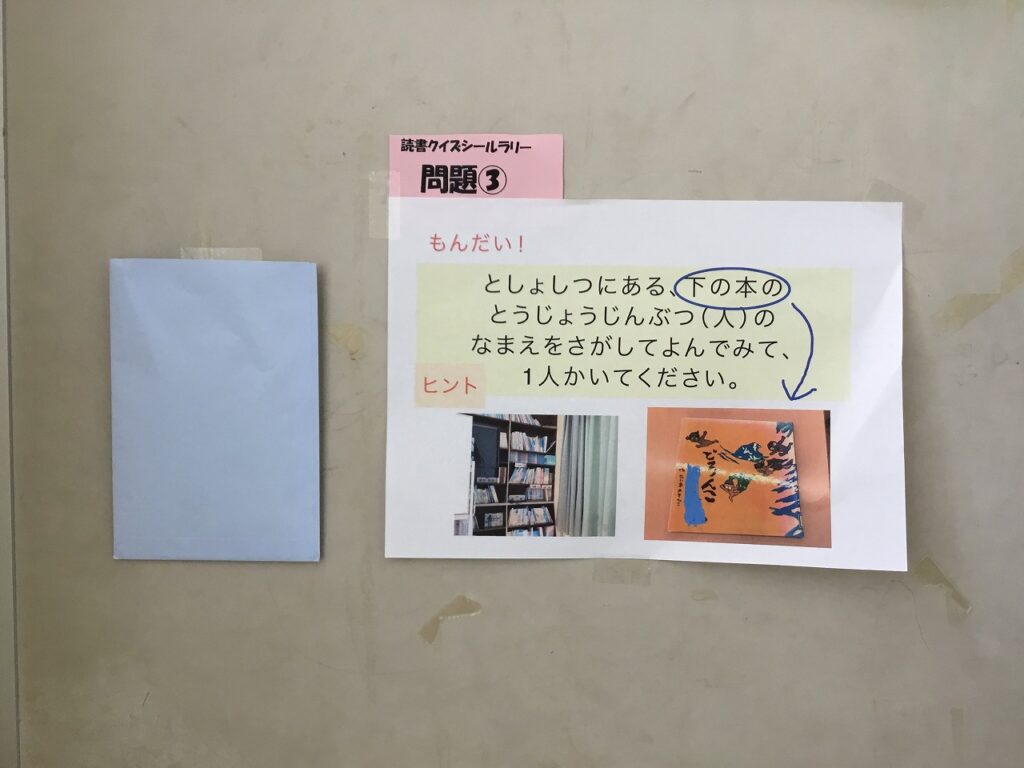 読書クイズシールラリー
問題③
もんだい！
としょしつにある、下の本の
とうじょうじんぶつ（人）の
なまえをさがしてよんでみて、
1人かいてください。
ヒント